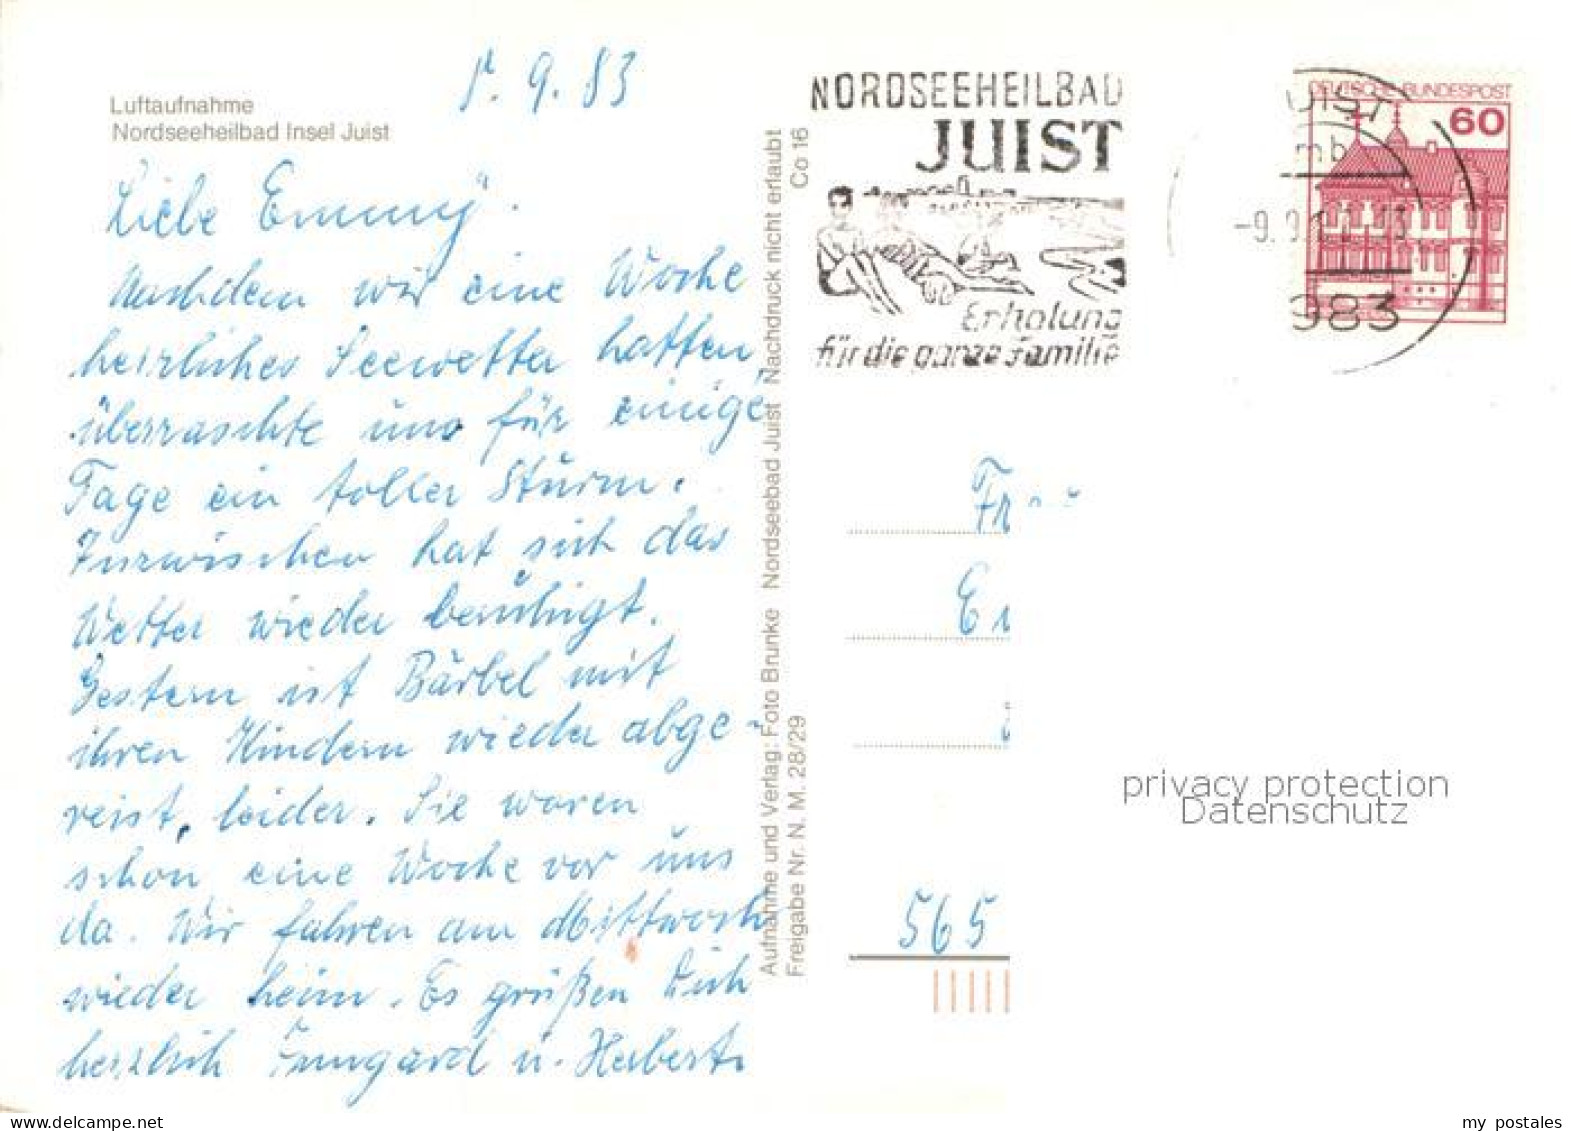 Luftaufnahme
Nordseeheilbad Insel Juist
8. 9. 83
Liebe Emmy.
Nachdem wir eine Woche
herrliches Seewetter hatten,
überraschte uns für einige
Tage ein toller Sturm.
Inzwischen hat sich das
Wetter wieder beruhigt.
Gestern ist Bärbel mit
ihren Kindern wieder abge-
reist, leider. Sie waren
schon eine Woche vor uns
da. Wir fahren am Mittwoch
wieder heim. Es grüßen Dich
herzlich Irmgard u. Herbert.
Aufnahme und Verlag: Foto Brunke Nordseebad Juist Nachdruck nicht erlaubt
Freigabe Nr. N. M. 28/29 Co 16
NORDSEEHEILBAD
JUIST
Erholung
für die ganze Familie
DEUTSCHE BUNDESPOST
60
JUIST
mb
-9.9.
983
565
privacy protection
Datenschutz
my_postales